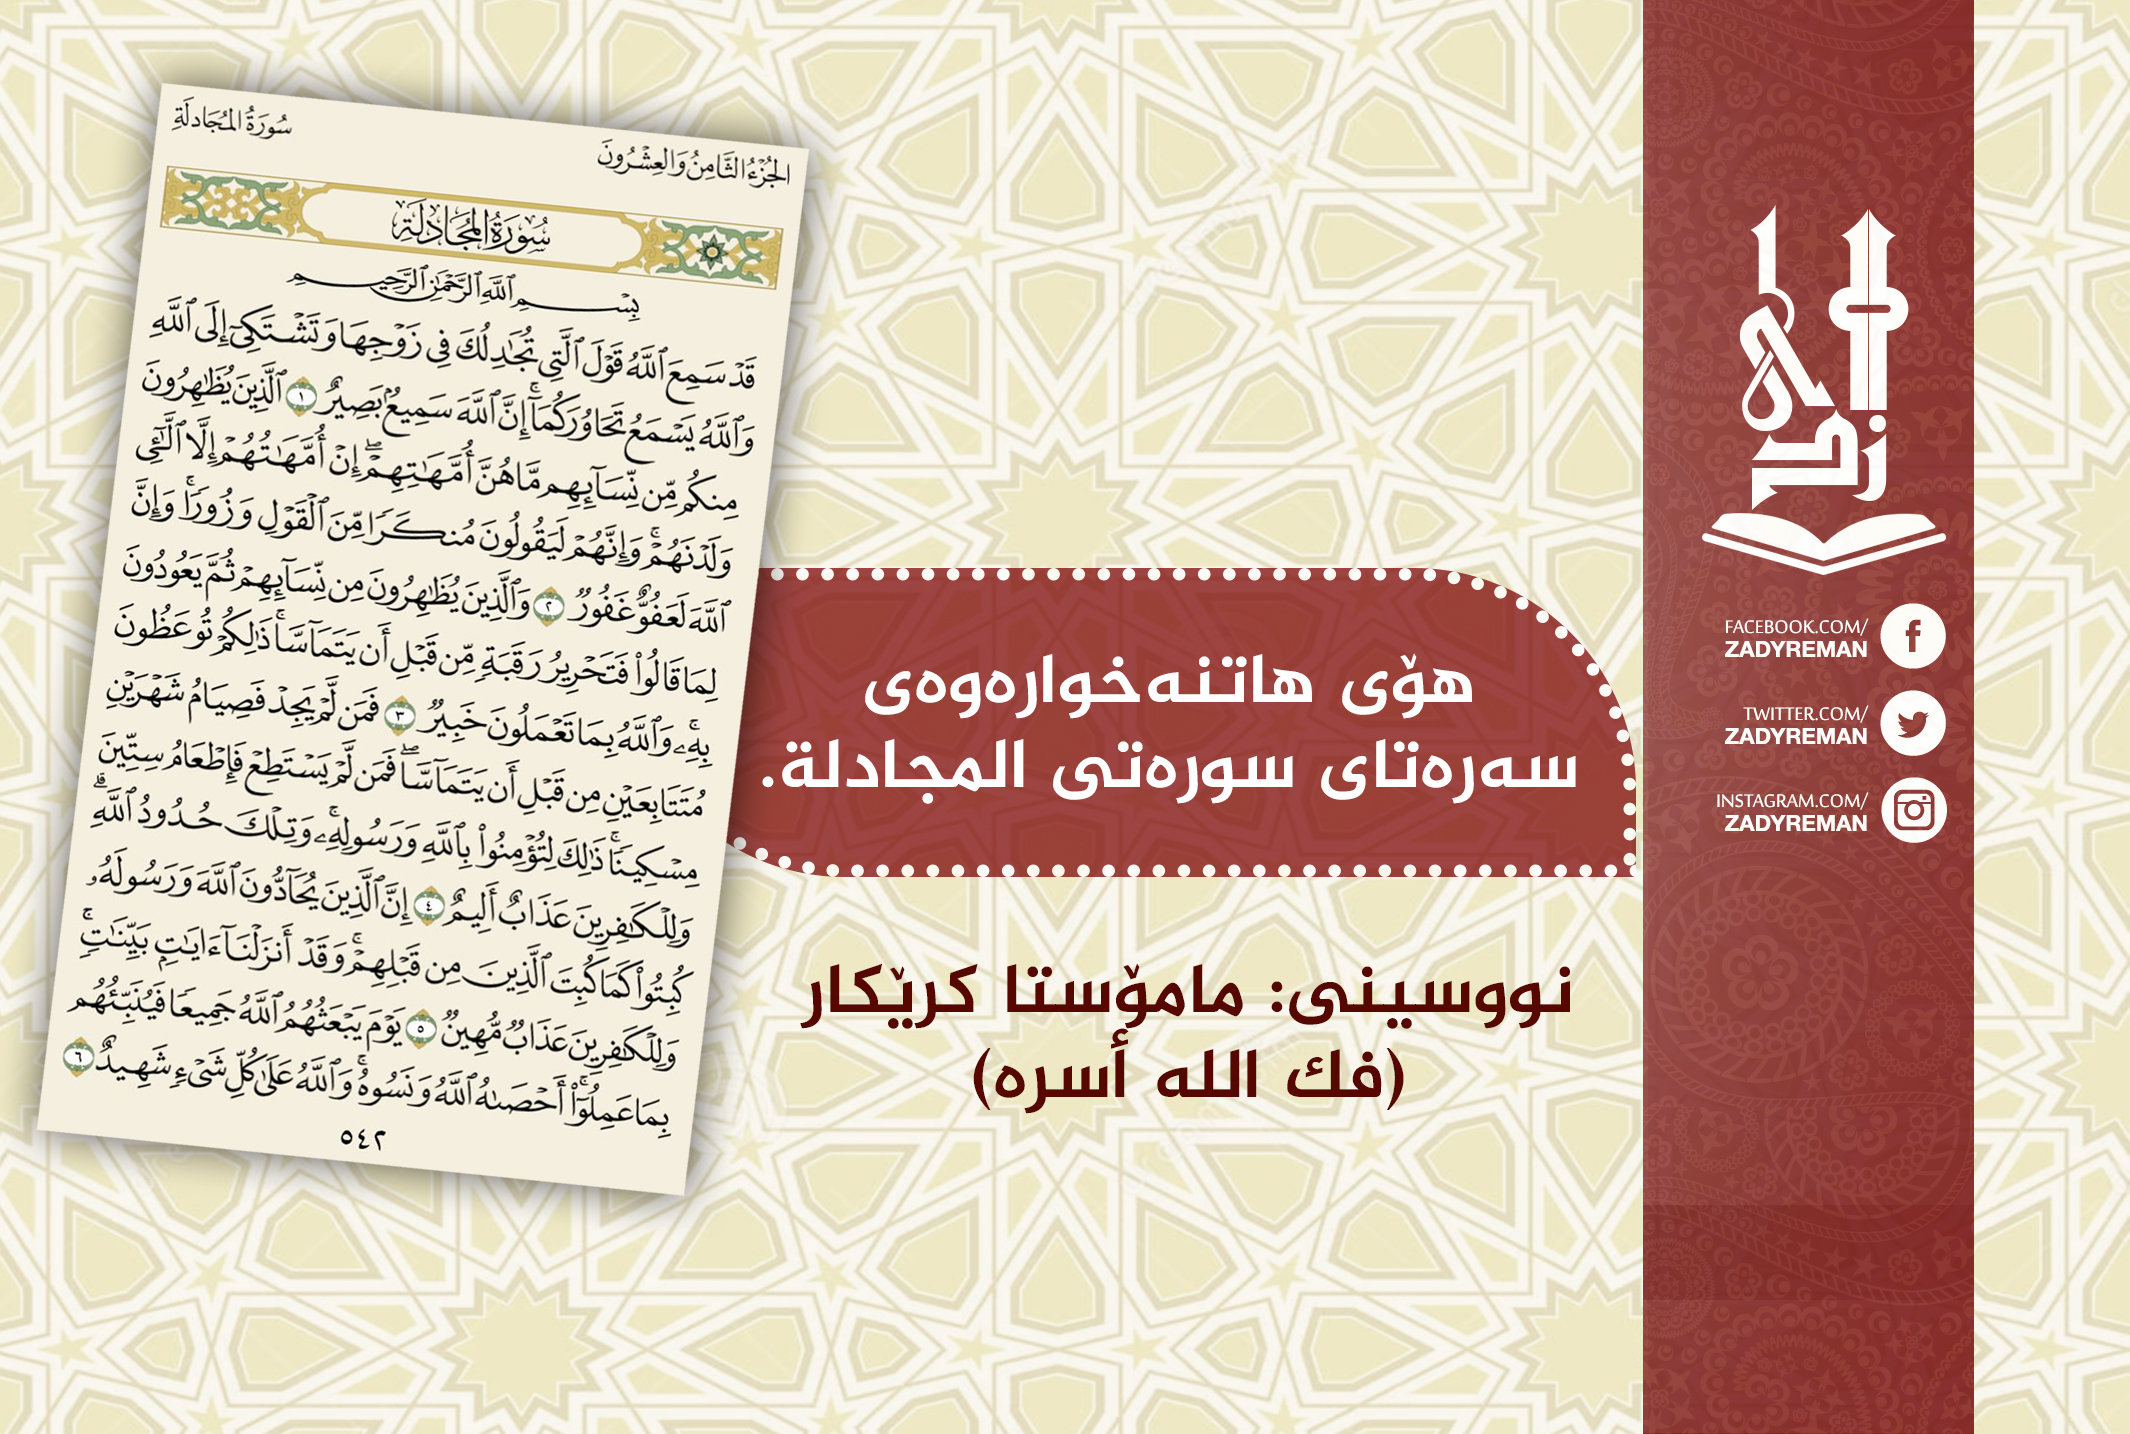 الجُزْءُ الثَّامِنُ وَالعِشْرُونَ
سُورَةُ المُجَادلَةِ
سُورَةُ المُجَادلَةِ
بِسْمِ ٱللَّهِ ٱلرَّحْمَٰنِ ٱلرَّحِيمِ
قَدْ سَمِعَ ٱللَّهُ قَوْلَ ٱلَّتِي تُجَٰدِلُكَ فِي زَوْجِهَا وَتَشْتَكِيٓ إِلَى ٱللَّهِ
وَٱللَّهُ يَسْمَعُ تَحَاوُرَكُمَآۚ إِنَّ ٱللَّهَ سَمِيعُۢ بَصِيرٌ ١ ٱلَّذِينَ يُظَٰهِرُونَ
مِنكُم مِّن نِّسَآئِهِم مَّا هُنَّ أُمَّهَٰتِهِمْۖ إِنْ أُمَّهَٰتُهُمْ إِلَّا ٱلَّٰٓـِٔي
وَلَدْنَهُمْۚ وَإِنَّهُمْ لَيَقُولُونَ مُنكَرًا مِّنَ ٱلْقَوْلِ وَزُورًاۚ وَإِنَّ
ٱللَّهَ لَعَفُوٌّ غَفُورٌ ٢ وَٱلَّذِينَ يُظَٰهِرُونَ مِن نِّسَآئِهِمْ ثُمَّ يَعُودُونَ
لِمَا قَالُوا۟ فَتَحْرِيرُ رَقَبَةٍ مِّن قَبْلِ أَن يَتَمَآسَّاۚ ذَٰلِكُمْ تُوعَظُونَ
بِهِۦۚ وَٱللَّهُ بِمَا تَعْمَلُونَ خَبِيرٌ ٣ فَمَن لَّمْ يَجِدْ فَصِيَامُ شَهْرَيْنِ
مُتَتَابِعَيْنِ مِن قَبْلِ أَن يَتَمَآسَّاۖ فَمَن لَّمْ يَسْتَطِعْ فَإِطْعَامُ سِتِّينَ
مِسْكِينًاۚ ذَٰلِكَ لِتُؤْمِنُوا۟ بِٱللَّهِ وَرَسُولِهِۦۚ وَتِلْكَ حُدُودُ ٱللَّهِۗ
وَلِلْكَٰفِرِينَ عَذَابٌ أَلِيمٌ ٤ إِنَّ ٱلَّذِينَ يُحَآدُّونَ ٱللَّهَ وَرَسُولَهُۥ
كُبِتُوا۟ كَمَا كُبِتَ ٱلَّذِينَ مِن قَبْلِهِمْۚ وَقَدْ أَنزَلْنَآ ءَايَٰتٍۭ بَيِّنَٰتٍۚ
وَلِلْكَٰفِرِينَ عَذَابٌ مُّهِينٌ ٥ يَوْمَ يَبْعَثُهُمُ ٱللَّهُ جَمِيعًا فَيُنَبِّئُهُم
بِمَا عَمِلُوٓا۟ۚ أَحْصَىٰهُ ٱللَّهُ وَنَسُوهُۚ وَٱللَّهُ عَلَىٰ كُلِّ شَيْءٍ شَهِيدٌ ٦
٥٤٢
هۆی هاتنەخوارەوەی
سەرەتای سورەتی المجادلة.
نووسینی: مامۆستا کرێکار
(فك الله أسره)
زادی
FACEBOOK.COM/
ZADYREMAN
TWITTER.COM/
ZADYREMAN
INSTAGRAM.COM/
ZADYREMAN